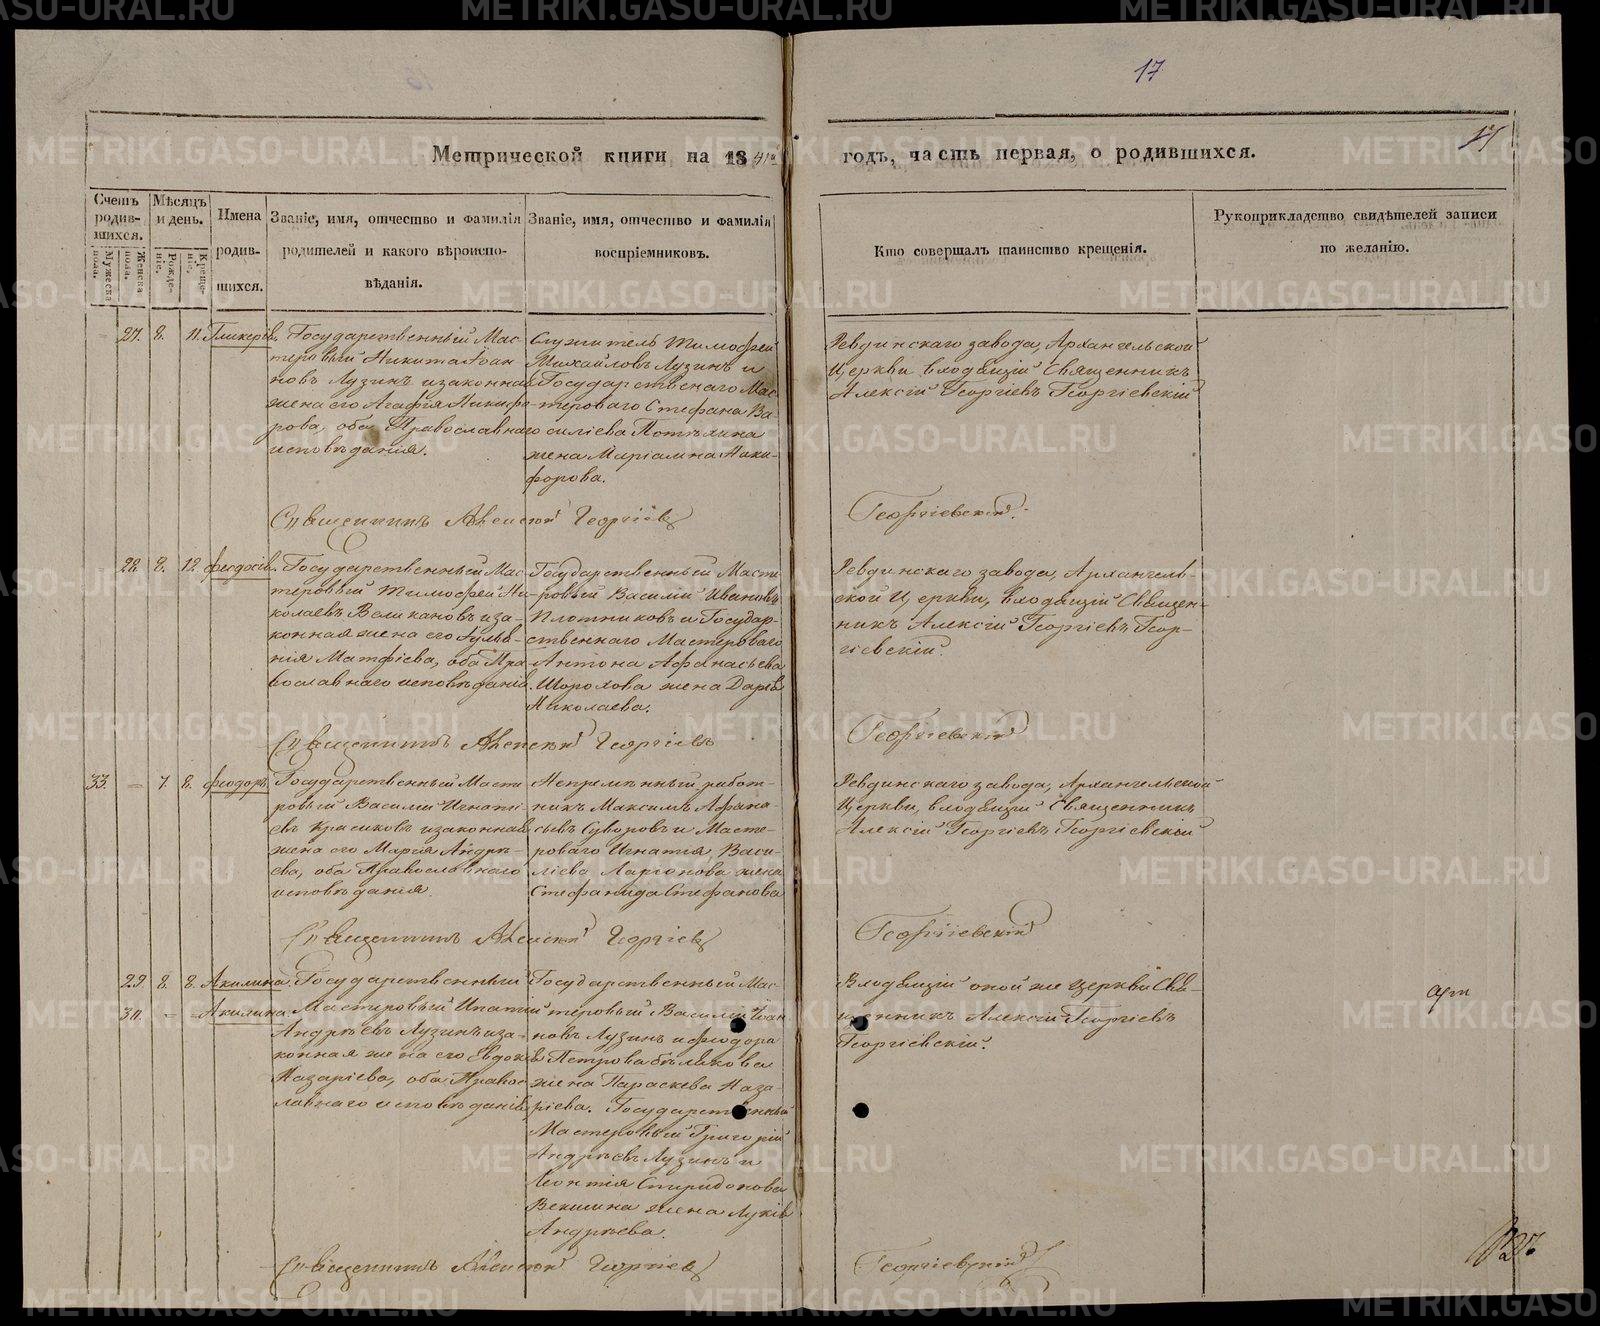 17
17
Метрической книги на 1841й годъ, часть первая, о родившихся.
Счетъ родившихся.
Мужеска пола.
Женска пола.
Мѣсяцъ и день.
Рожденіе.
Крещеніе.
Имена родившихся.
Званіе, имя, отчество и фамилія
родителей и какого вѣроиспо-
вѣданія.
Званіе, имя, отчество и фамилія
воспріемниковъ.
Кто совершалъ таинство крещенія.
Рукоприкладство свидѣтелей записи
по желанію.
27. 8. 11. Гликерія.
Государственный Мас-
теровый Никита Іоан
новъ Лузинъ и законная
жена его Агафія Никифо-
рова, оба Православнаго
исповѣданія.
Служитель Тимофей
Михайловъ Лузинъ и
Государственнаго Мас-
тероваго Стефана Ва-
силіева Потѣхина
жена Маріамна Ники-
форова.
Ревдинскаго завода, Архангельской
Церкви входящій Священникъ
Алексій Георгіевъ Георгіевскій
Священникъ Алексій Георгіевъ
Георгіевскій.
28. 8. 12. Феодосія.
Государственный Мас-
теровый Тимофей Ни-
колаевъ Великановъ и за-
конная жена его Іулiа-
нія Матфіева, оба Пра-
вославнаго исповѣданія.
Государственный Масте-
ровый Василій Ивановъ
Плотниковъ и Государ-
ственнаго Мастероваго
Антона Афанасьева
Шорохова жена Дарія
Николаева.
Ревдинскаго завода, Архангель-
ской Церкви, входящій Священ-
никъ Алексій Георгіевъ Геор-
гіевскій.
Священникъ Алексій Георгіевъ
Георгіевскій
33. — 7. 8. Феодоръ.
Государственный Масте
ровый Василій Игнаті-
евъ Красиковъ и законная
жена его Марія Андрѣ-
ева, оба Православнаго
исповѣданія.
Непремѣнный работ-
никъ Максимъ Афана-
сьевъ Суворовъ и Масте-
роваго Игнатія Васи-
ліева Ларіонова жена
Стефанида Стефанова
Ревдинскаго завода, Архангельской
Церкви, входящій Священникъ
Алексій Георгіевъ Георгіевскій
Священникъ Алексій Георгіевъ
Георгіевскій
29. 8. 8. Акилина.
30. — — Акилина.
Государственный
Мастеровый Ипатій
Андрѣевъ Лузинъ и за-
конная жена его Евдокія
Назаріева, оба Правос-
лавнаго исповѣданія.
Государственный Мас-
теровый Василій Іоан
новъ Лузинъ и Феодора
Петрова Бѣликова
жена Параскева Наза-
ріева. Государственный
Мастеровый Григорій
Андрѣевъ Лузинъ и
Леонтія Спиридонова
Векшина жена Лукія
Андрѣева.
Входящій оной же церкви Свя-
щенникъ Алексій Георгіевъ
Георгіевскій.
Священникъ Алексій Георгіевъ
Георгіевскій
METRIKI.GASO-URAL.RU